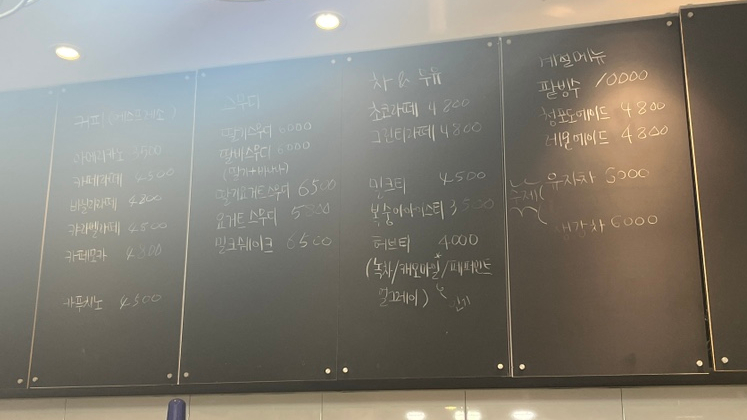 커피 (에스프레소)
아메리카노 3500
카페라떼 4500
바닐라라떼 4800
카라멜라떼 4800
카페모카 4800
카푸치노 4500
스무디
딸기스무디 6000
딸바스무디 6000
(딸기+바나나)
딸기요거트스무디 6500
요거트스무디
밀크쉐이크 6500
차 & 우유
초코라떼 4800
그린티라떼 4800
밀크티 4500
복숭아아이스티 3500
허브티 4000
(녹차/캐모마일/페퍼민트
얼그레이)
계절메뉴
팥빙수 10000
청포도에이드 4800
레몬에이드 4800
유자차 6000
생강차 6000